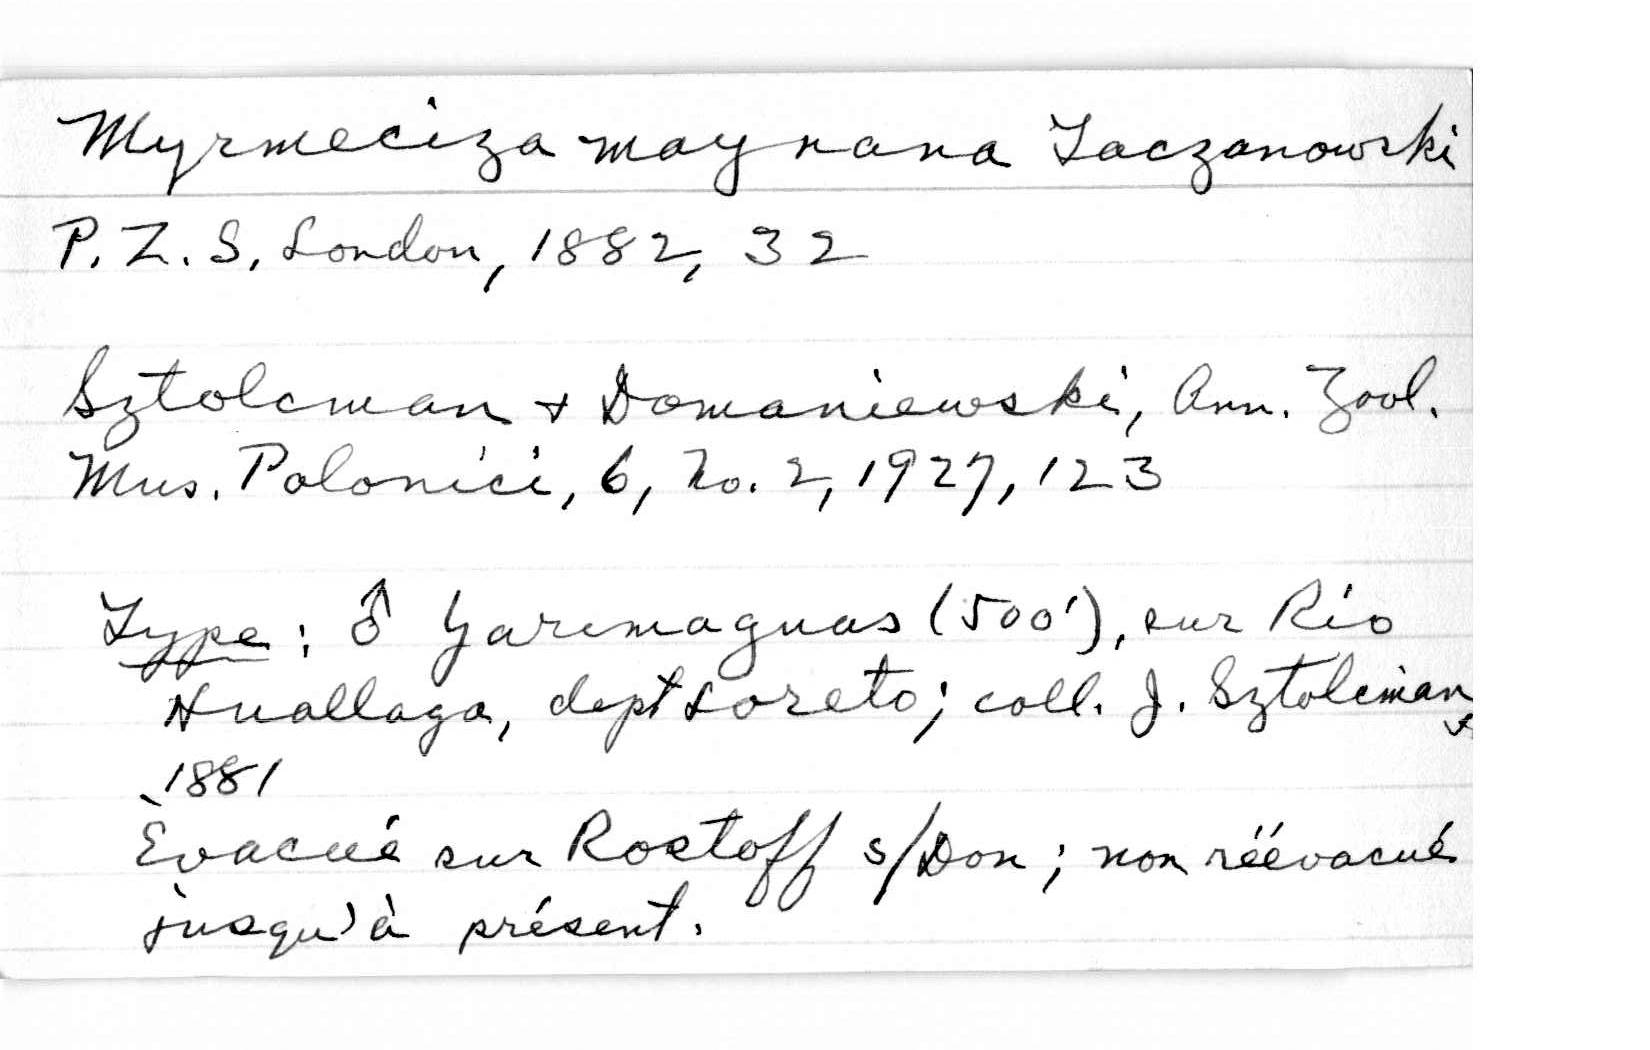 Myrmeciza maynana Taczanowski
P. Z. S, London, 1882, 32
Sztolcman + Domaniewski, Ann. Zool.
Mus. Polonici, 6, No. 2, 1927, 123
Type: ♂ Yurimaguas (500'), sur Rio
Huallaga, dept Loreto; coll. J. Sztolcman
1881
Èvacué sur Rostoff s/Don; non réévacué
jusqu'à présent.